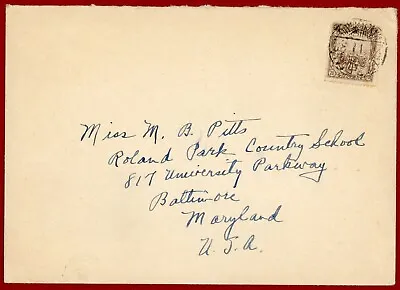 Miss M. B. Pitts
Roland Park Country School
817 University Parkway
Baltimore
Maryland
U. S. A.